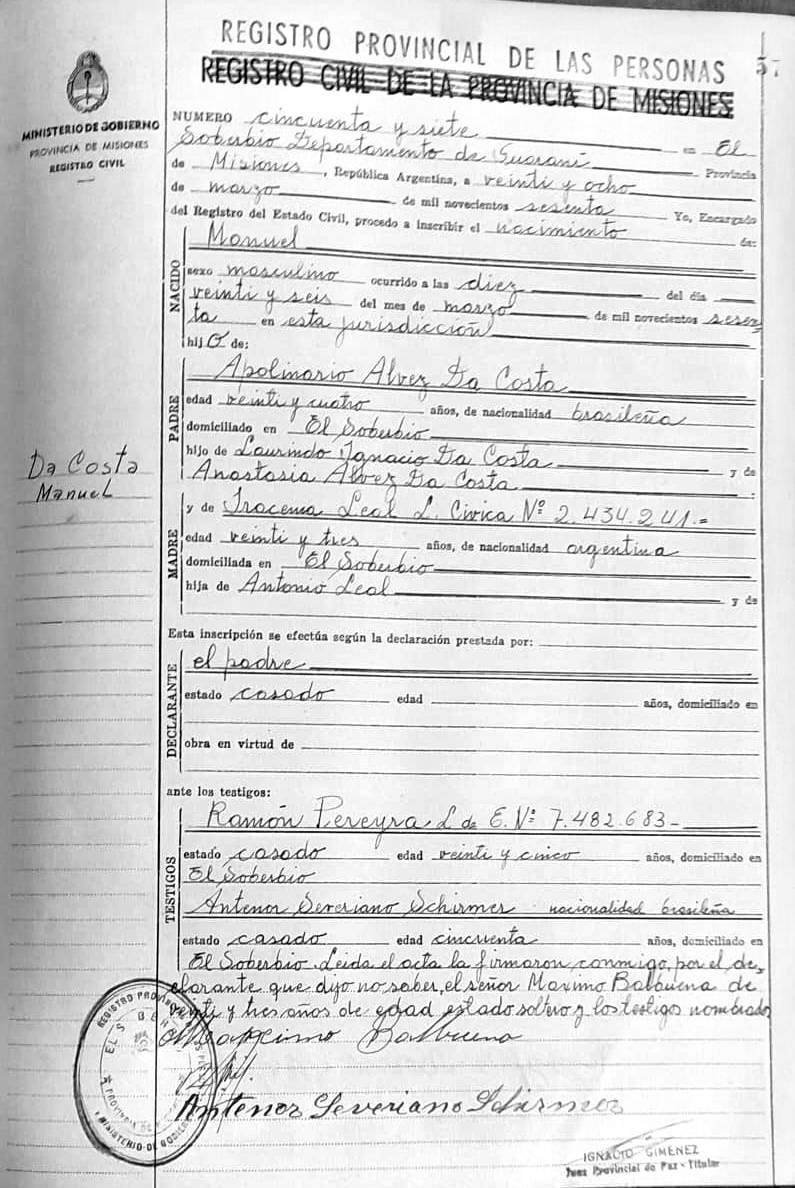 REGISTRO PROVINCIAL DE LAS PERSONAS
57
REGISTRO CIVIL DE LA PROVINCIA DE MISIONES
MINISTERIO DE GOBIERNO
PROVINCIA DE MISIONES
REGISTRO CIVIL
NUMERO cincuenta y siete
Soberbio Departamento de Guaraní = El
de Misiones, República Argentina, a veinti y ocho Provincia
de marzo de mil novecientos sesenta Yo, Encargado
del Registro del Estado Civil, procedo a inscribir el nacimiento de:
NACIDO
Manuel
sexo masculino ocurrido a las diez del día
veinti y seis del mes de marzo de mil novecientos sesen
ta en esta jurisdicción
hijo de:
PADRE
Apolinario Alvez Da Costa
edad veinti y cuatro años, de nacionalidad brasileña
domiciliado en El Soberbio
hijo de Laurindo Ignacio Da Costa y de
Anastasia Alvez Da Costa
Da Costa
Manuel
MADRE
y de Iracema Leal L. Cívica Nº 2.434.241.=
edad veinti y tres años, de nacionalidad argentina
domiciliada en El Soberbio
hija de Antonio Leal y de
Esta inscripción se efectúa según la declaración prestada por:
DECLARANTE
el padre
estado casado edad años, domiciliado en
obra en virtud de
ante los testigos:
TESTIGOS
Ramón Pereyra L de E. Nº 7.482.683-
estado casado edad veinti y cinco años, domiciliado en
El Soberbio
Antenor Severiano Schirmer nacionalidad brasileña
estado casado edad cincuenta años, domiciliado en
El Soberbio. Leida el acta la firmaron conmigo, por el de-
clarante que dijo no saber, el señor Maximo Balbuena de
veinti y tres años de edad estado soltero y los testigos nombrados
Maximo Balbuena
Antenor Severiano Schirmer
REGISTRO PROVINCIAL
EL SOBERBIO
MINISTERIO DE GOBIERNO
IGNACIO GIMENEZ
Juez Provincial de Paz - Titular